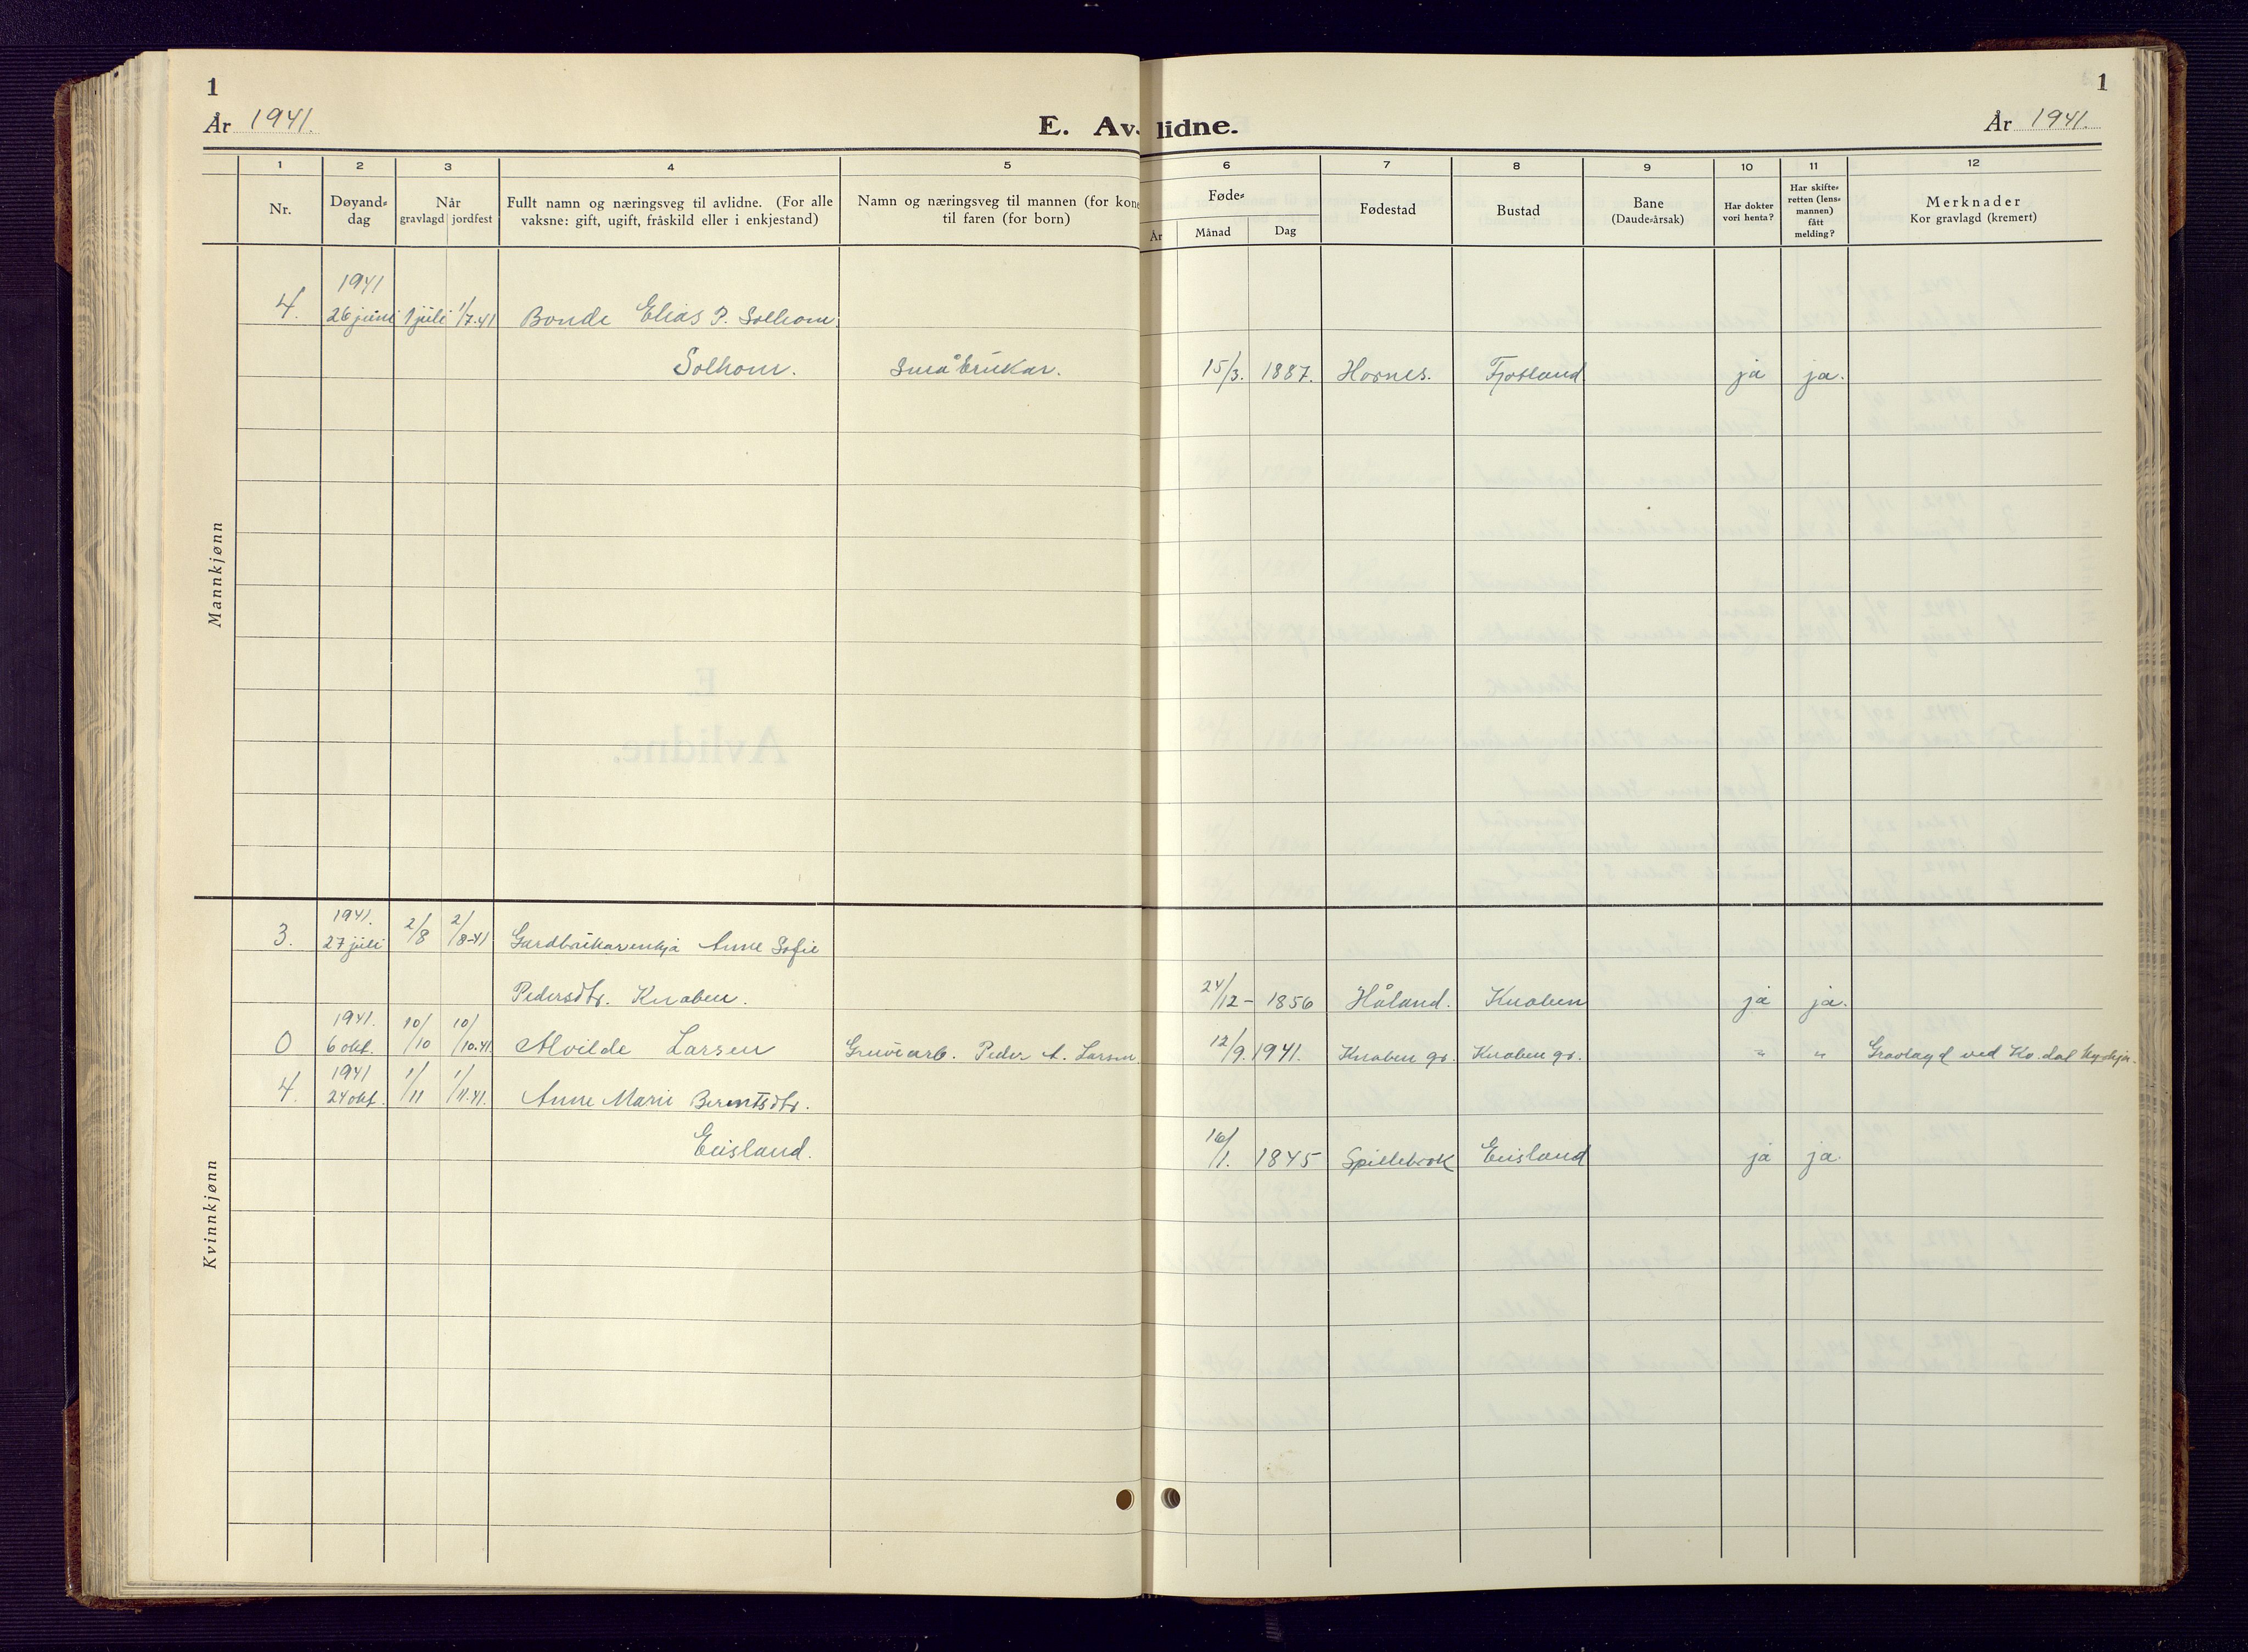 1
1
År 1941.
E. Avlidne.
År 1941.
1 2 3 4 5 6 7 8 9 10 11 12
Nr.
Døyand-
dag
Når
gravlagd jordfest
Fullt namn og næringsveg til avlidne. (For alle
vaksne: gift, ugift, fråskild eller i enkjestand)
Namn og næringsveg til mannen (for kone
til faren (for born)
Føde-
År Månad Dag
Fødestad
Bustad
Bane
(Daude-årsak)
Har dokter
vori henta?
Har skifte-
retten (lens-
mannen)
fått
melding?
Merknader
Kor gravlagd (kremert)
Mannkjønn
1941
4. 26 juni 1 juli 1/7-41 Bonde Elias P. Solhom,
Solhom. Småbrukar. 15/3. 1887. Hornes. Fjotland ja ja.
Kvinnkjønn
1941.
3. 27 juli 2/8 2/8-41 Gardbrukarenkja Anne Sofie
Pedersdtr. Knaben. 24/12- 1856 Håland. Knaben ja ja.
1941.
0 6 okt. 10/10 10/10.41. Alvilde Larsen Gruvearb. Peder A. Larsen 12/9. 1941. Knaben gr. Knaben gr. " " Gravlagd ved Kv.dal kyrkja.
1941
4. 24 okt. 1/11 1/11.41. Anne Marie Berentsdtr.
Eiisland. 16/1. 1845 Spillebrok Eiisland ja ja.